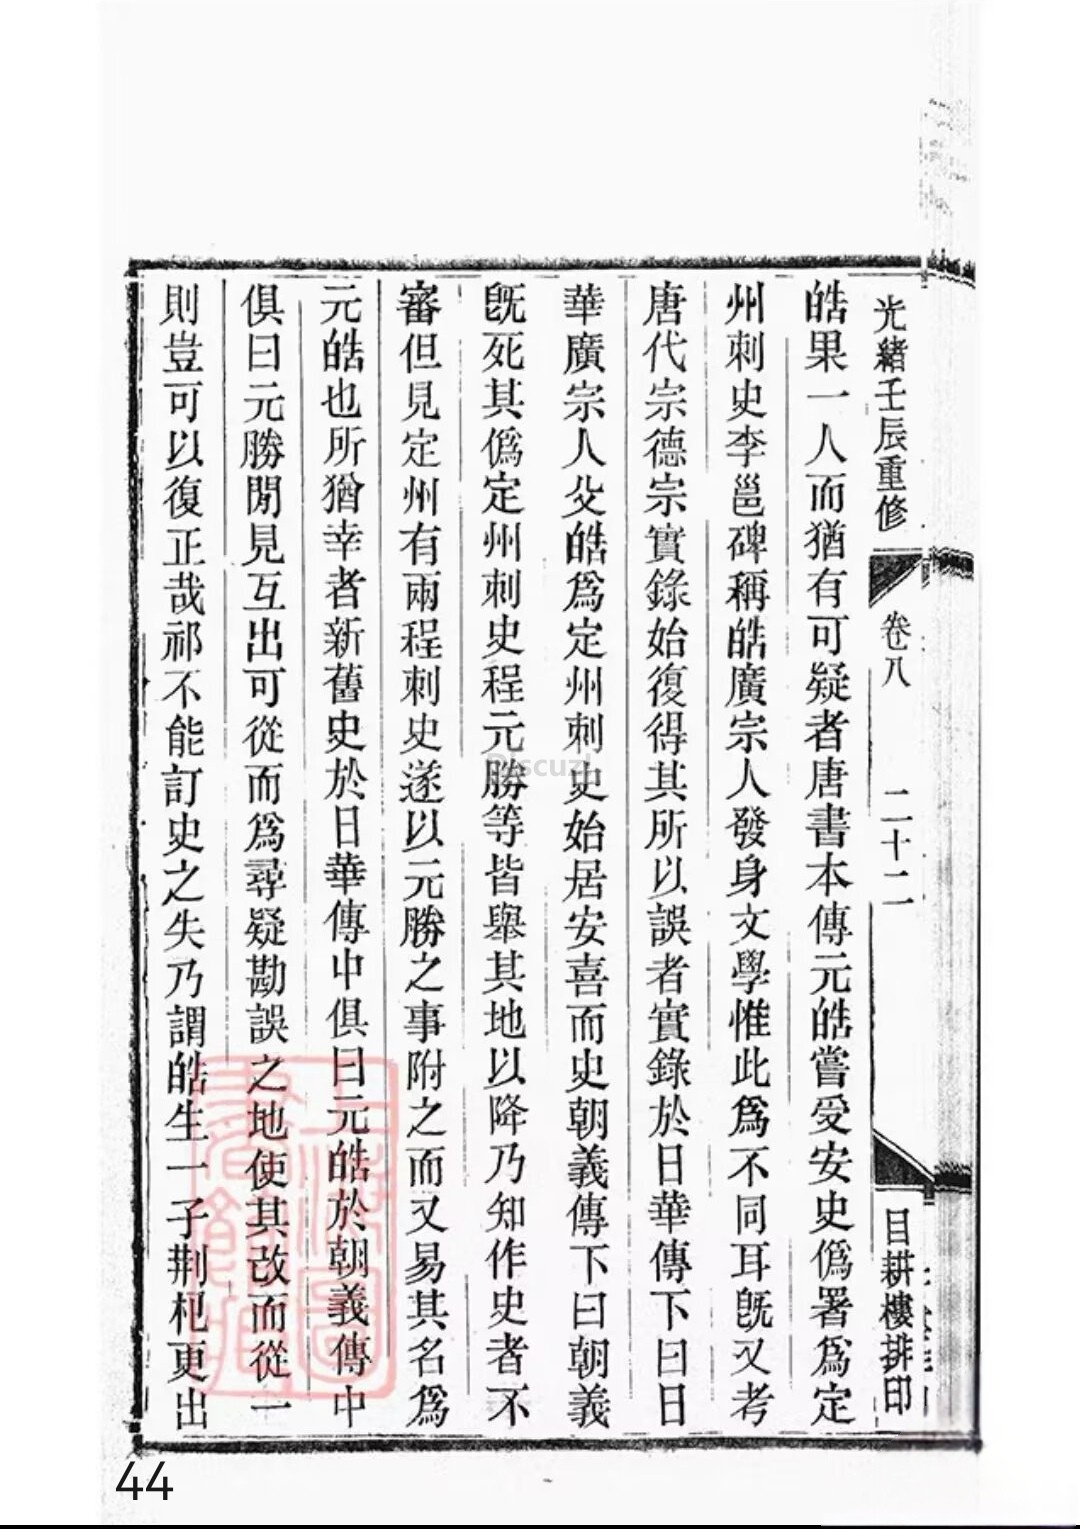 光緒壬辰重修
卷八
二十二
目耕樓排印
皓果一人而猶有可疑者唐書本傳元皓嘗受安史僞署爲定
州刺史李邕碑稱皓廣宗人發身文學惟此爲不同耳旣又考
唐代宗德宗實錄始復得其所以誤者實錄於日華傳下曰日
華廣宗人父皓爲定州刺史始居安喜而史朝義傳下曰朝義
旣死其僞定州刺史程元勝等皆舉其地以降乃知作史者不
審但見定州有兩程刺史遂以元勝之事附之而又易其名爲
元皓也所猶幸者新舊史於日華傳中俱曰元皓於朝義傳中
俱曰元勝閒見互出可從而爲尋疑勘誤之地使其改而從一
則豈可以復正哉祁不能訂史之失乃謂皓生一子荆杞更出
上海圖
書館藏
Discuz!
44